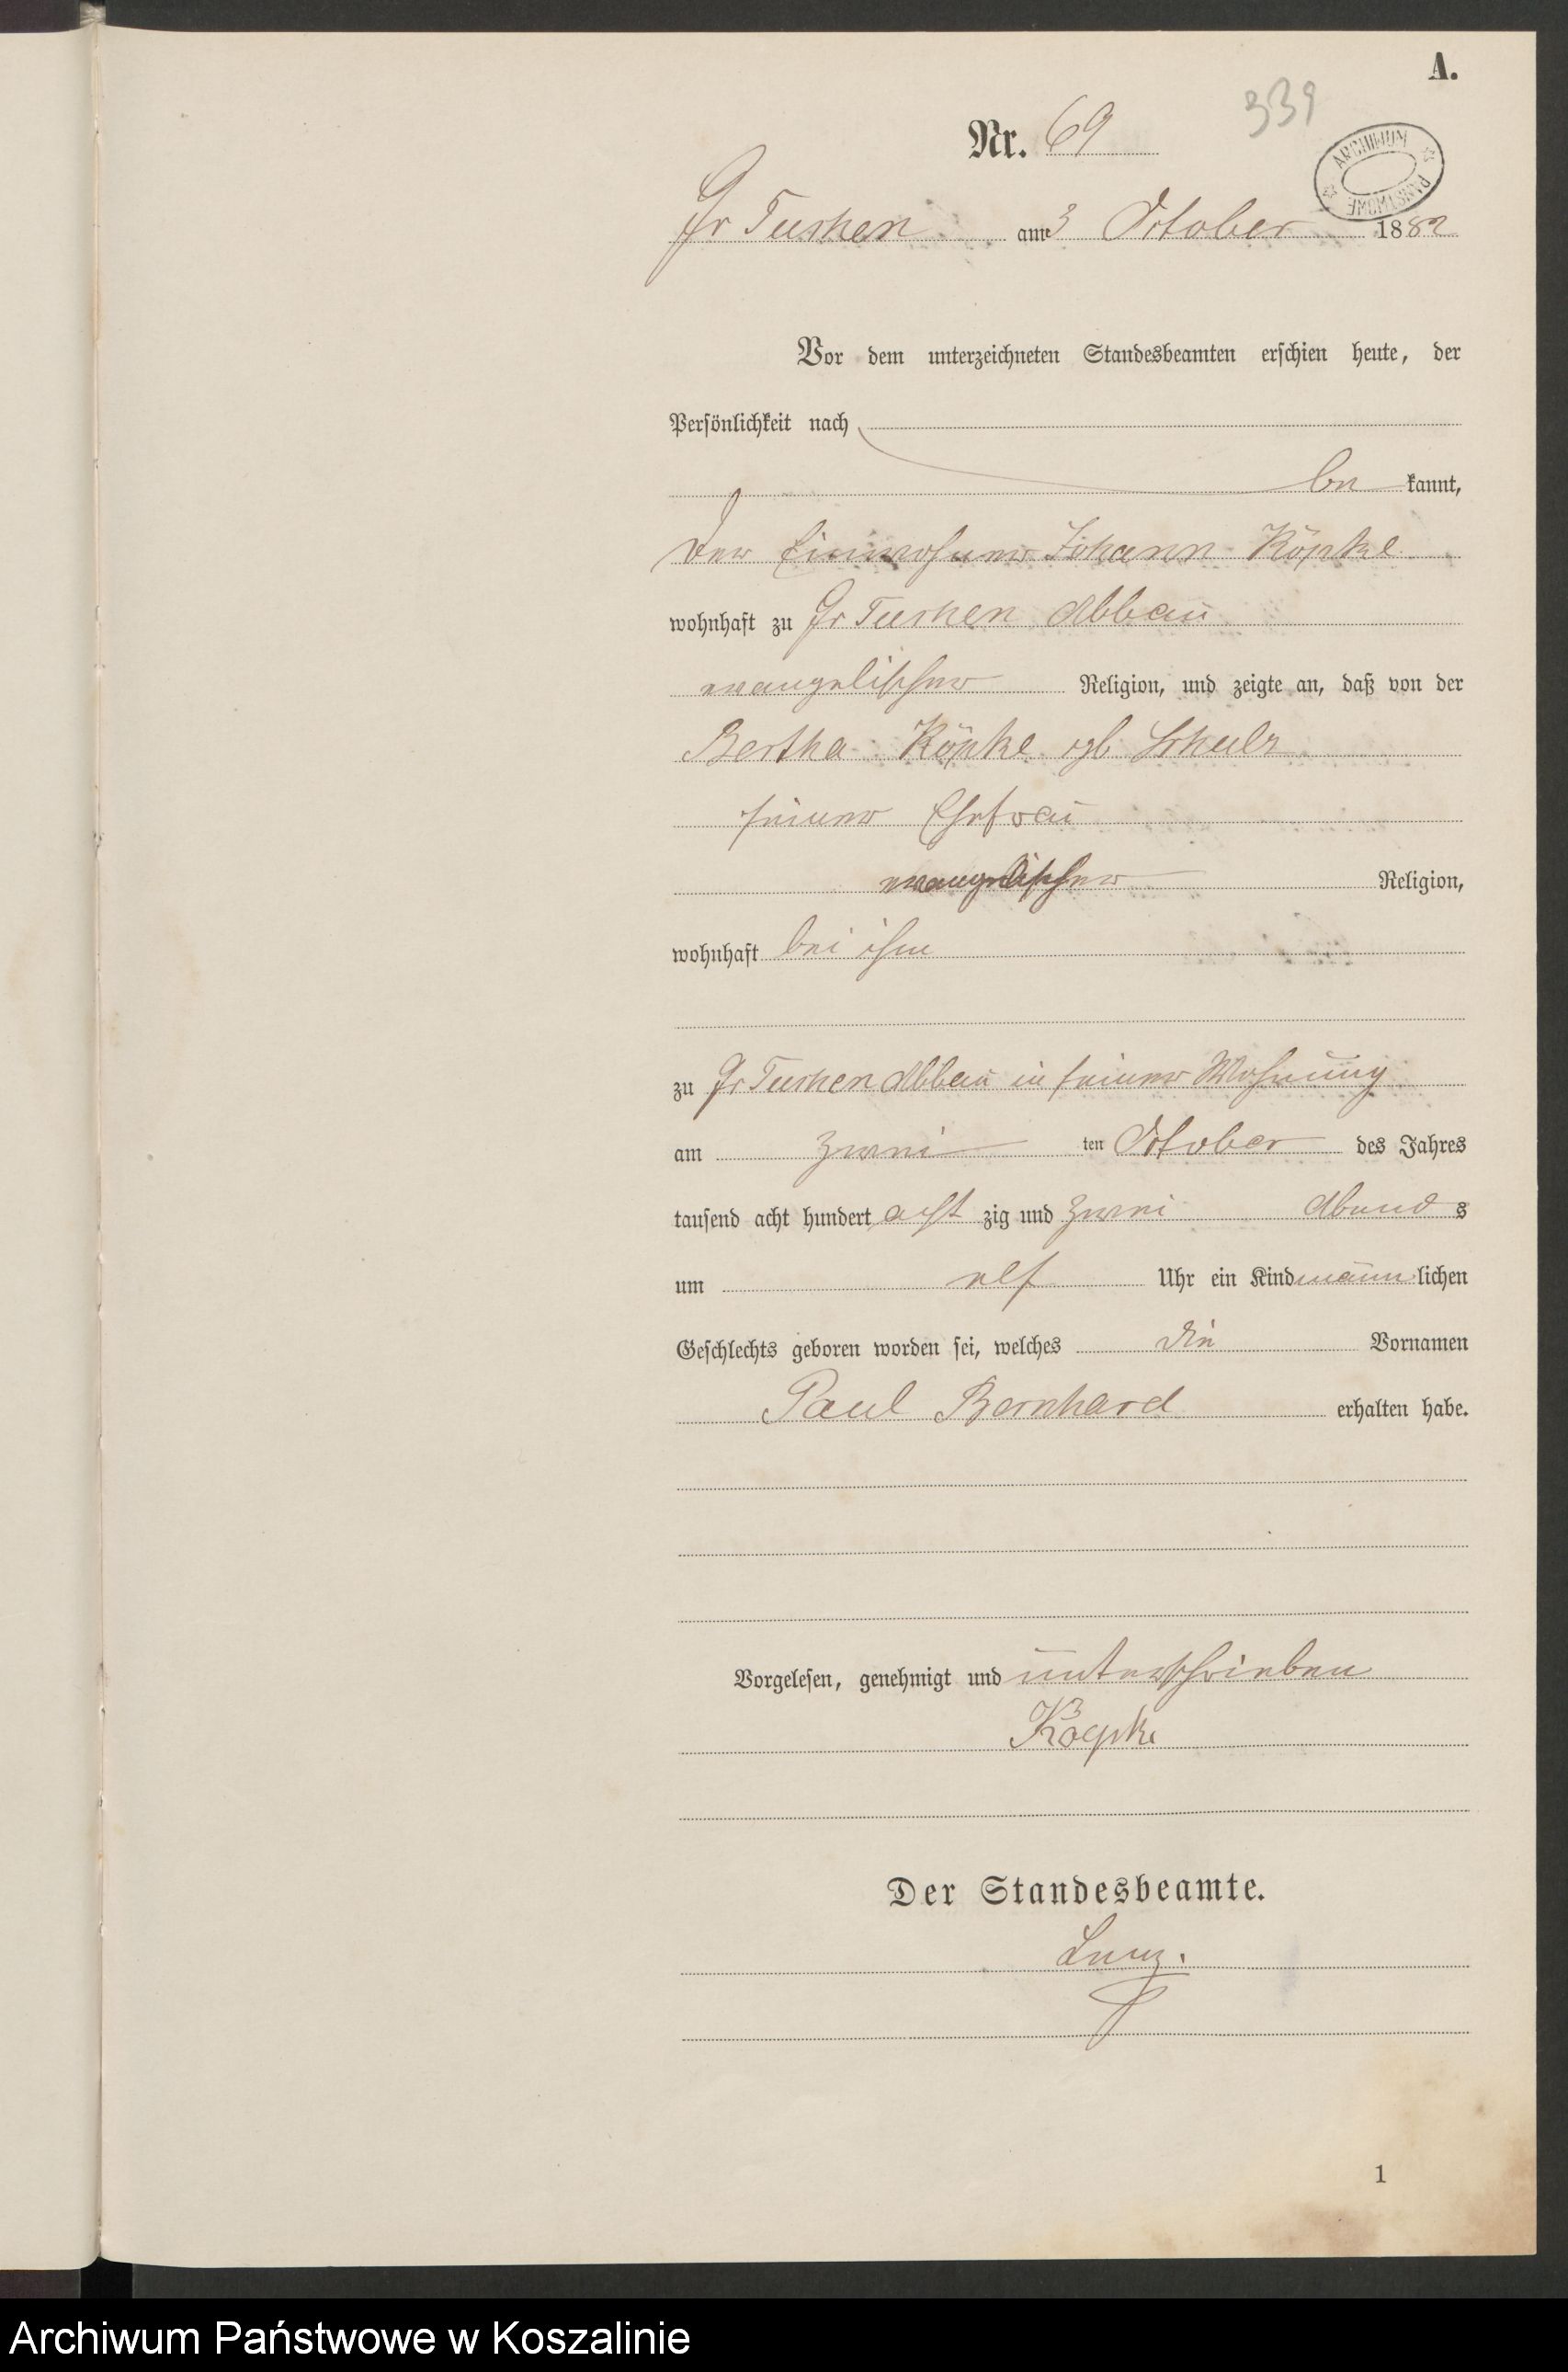 A.
339
Nr. 69
ARCHIWUM PAŃSTWOWE
Gr Tuchen am 3 October 1882
Vor dem unterzeichneten Standesbeamten erschien heute, der
Persönlichkeit nach
be kannt,
der Einwohner Johann Köpke
wohnhaft zu Gr Tuchen Abbau
evangelischer Religion, und zeigte an, daß von der
Bertha Köpke geb Schulz
seiner Ehefrau
evangelischer Religion,
wohnhaft bei ihm
zu Gr Tuchen Abbau in seiner Wohnung
am zwei ten October des Jahres
tausend acht hundert acht zig und zwei Abend s
um elf Uhr ein Kind männ lichen
Geschlechts geboren worden sei, welches die Vornamen
Paul Bernhard erhalten habe.
Vorgelesen, genehmigt und unterschrieben
Koepke
Der Standesbeamte.
1
Archiwum Państwowe w Koszalinie